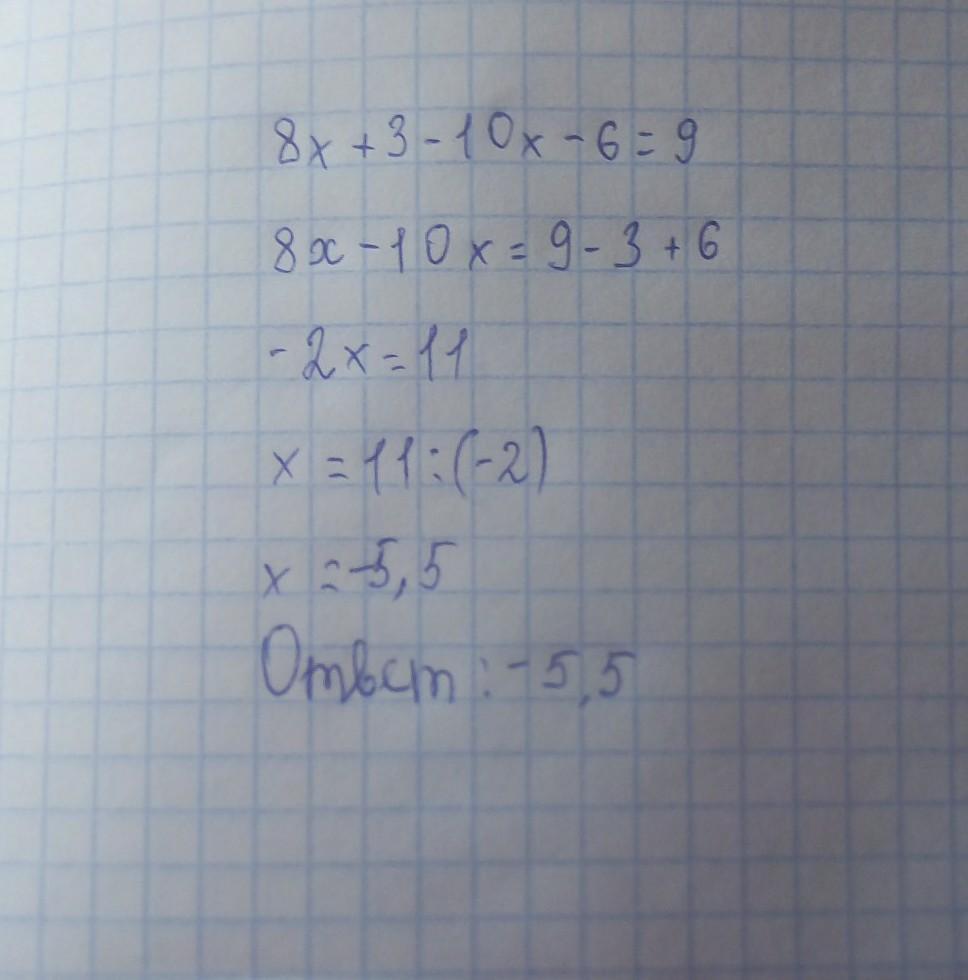 8x+3-10x-6=9
8x-10x=9-3+6
-2x=11
x=11:(-2)
x=-5,5
Ответ:-5,5